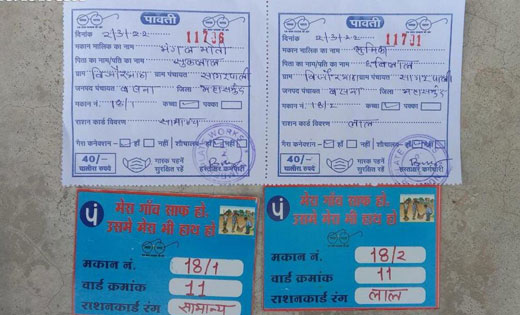 पावती
दिनांक 2/3/22 11706
मकान मालिक का नाम मंगल मोती
पिता का नाम/पति का नाम
ग्राम ग्राम पंचायत सागरपाली
जनपद पंचायत बसना जिला महासमुंद
मकान नं. 18/1 कच्चा पक्का
राशन कार्ड विवरण सामान्य
गैस कनेक्शन - हाँ नहीं शौचालय - हाँ नहीं
40/-
चालीस रुपये
मास्क पहनें
सुरक्षित रहें
हस्ताक्षर कर्मचारी
पावती
दिनांक 2/3/22 11701
मकान मालिक का नाम
पिता का नाम/पति का नाम
ग्राम ग्राम पंचायत सागरपाली
जनपद पंचायत बसना जिला महासमुंद
मकान नं. 18/2 कच्चा पक्का
राशन कार्ड विवरण लाल
गैस कनेक्शन - हाँ नहीं शौचालय - हाँ नहीं
40/-
चालीस रुपये
मास्क पहनें
सुरक्षित रहें
हस्ताक्षर कर्मचारी
पं मेरा गाँव साफ हो,
उसमे मेरा भी हाथ हो
मकान नं. 18/1
वार्ड क्रमांक 11
राशनकार्ड रंग सामान्य
पं मेरा गाँव साफ हो,
उसमे मेरा भी हाथ हो
मकान नं. 18/2
वार्ड क्रमांक 11
राशनकार्ड रंग लाल